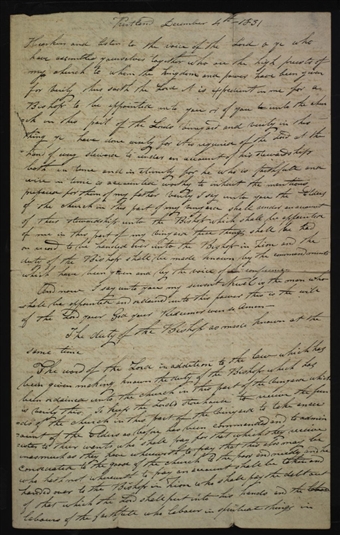 Kirtland December 4th 1831
Hearken and listen to the voice of the Lord o ye who
have assembled yourselves together who are the high priests of
my church to whom the kingdom and power have been given
for verily thus saith the Lord it is expedient in me for a
Bishop to be appointed unto you or of you unto the chu
rch in this part of the Lords vineyard and verily in this
thing ye have done wisely for it is required of the Lord at the
hand of every steward to render an account of his stewardship
both in time and in eternity for he who is faithful and
wise in time is accounted worthy to inherit the mansions
prepared for them of my father verily I say unto you the elders
of the church in this part of my vineyard shall render an account
of their stewardship unto the Bishop which shall be appointed
of me in this part of my vineyard these things shall be had
on record to be handed over unto the Bishop in Zion and the
duty of the Bishop shall be made known by the commandments
which have been given and by the voice of the conference
And now I say unto you my servant is the man who
shall be appointed and ordained unto this power this is the will
of the Lord your God your Redeemer even so amen
The duty of the Bishop as made known at the
same time
The word of the Lord in addition to the law which has
been given making known the duty of the Bishop which has
been ordained unto the church in this part of the vineyard which
is verily this to keep the Lords store house to receive the fun
ds of the church in this part of the vineyard to take an acc
ount of the Elders as before has been commanded and to admin
ister to their wants who shall pay for that which they receive
inasmuch as they have wherewith to pay that this also may be
consecrated to the good of the church to the poor and needy and he
who hath not wherewith to pay an account shall be taken and
handed over to the Bishop in Zion who shall pay the debt out
of that which the Lord shall put into his hands and the
labours of the faithful who labour in spiritual things in